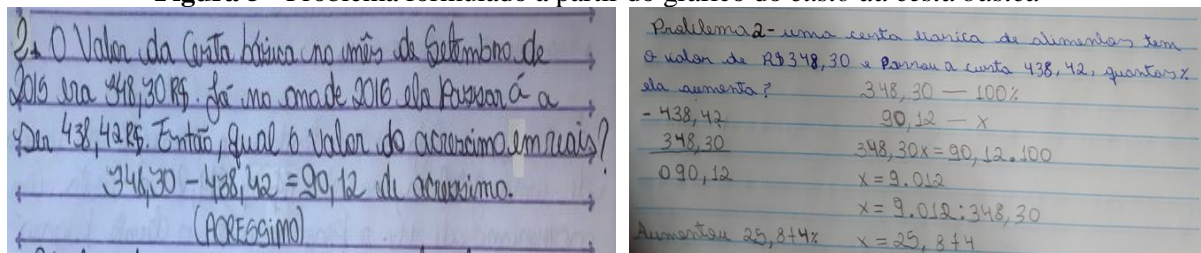 Figura 5 - Problema formulado a partir do gráfico do custo da cesta básica
2. O Valor da Cesta básica no mês de Setembro de
2015 era 348,30 R$. Já no ano de 2016 ela passará a
Ser 438,42 R$. Então, qual o valor do acrescimo em reais?
348,30 - 438,42 = 90,12 de acressimo.
(ACRESSimO)
Problema 2 - uma cesta basica de alimentos tem
o valor de R$348,30 e passou a custa 438,42, quantos%
ela aumenta?
- 438,42
348,30
090,12
Aumentou 25,874%
348,30 — 100%
90,12 — x
348,30x = 90,12.100
x = 9.012
x = 9.012 : 348,30
x = 25,874